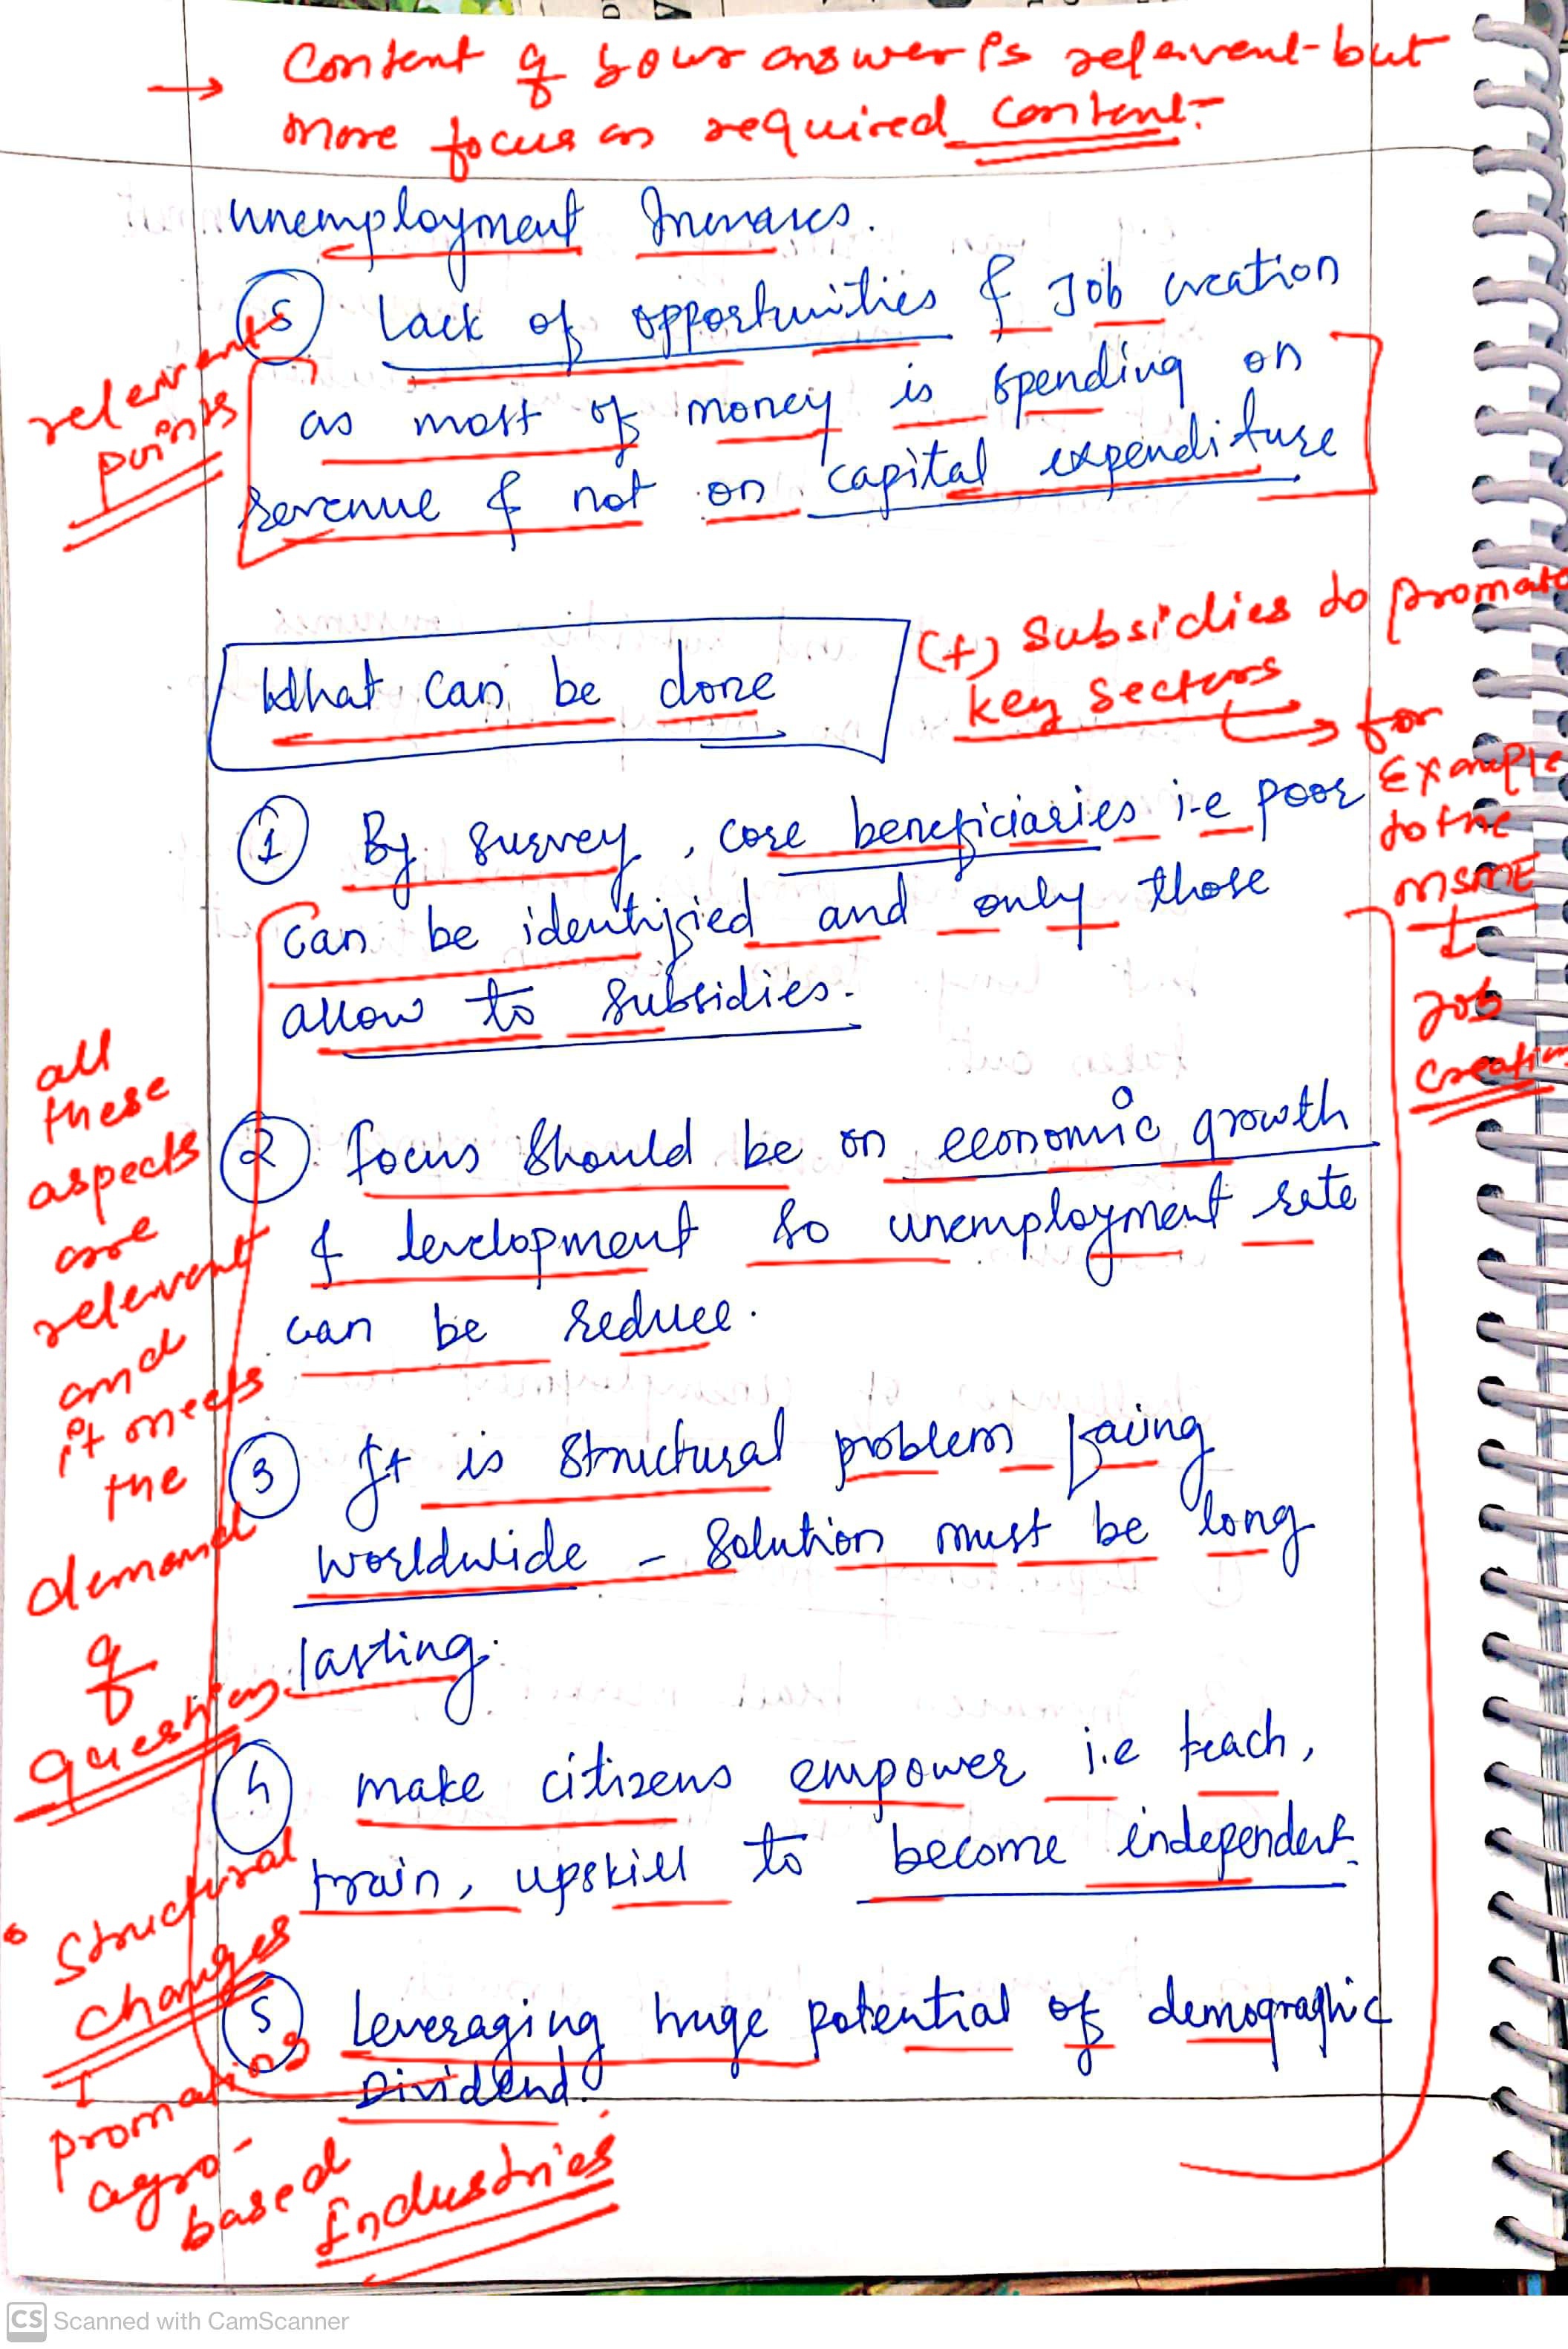 → Content of your answer is relevent but
more focus on required content.
unemployment Increases.
⑤ Lack of opportunities & Job creation
as most of money is spending on
revenue & not on capital expenditure
relevent
points
What can be done
(+) Subsidies to promote
key sectors
→ for
Example
to the
MSME
↓
Job
Creation
① By survey, core beneficiaries i.e poor
can be identified and only those
allow to subsidies.
② focus should be on economic growth
& development so unemployment rate
can be reduce.
③ It is structural problem facing
worldwide - solution must be long
lasting.
④ make citizens empower i.e teach,
train, upskill to become independent.
⑤ Leveraging huge potential of demographic
Dividend.
all
these
aspects
are
relevent
and
it meets
the
demand
of
question.
• Structural
changes
↓
promoting
agro-
based
Industries
CS Scanned with CamScanner